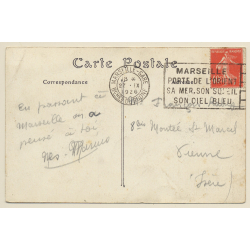 Carte Postale
Correspondance
MARSEILLE-GARE
MARSEILLE
PORTE DE L'ORIENT
SA MER, SON SOLEIL
SON CIEL BLEU
En passant à
Marseille on a
pensé à toi
8 Montée St Marcel
Vienne
(Isère)